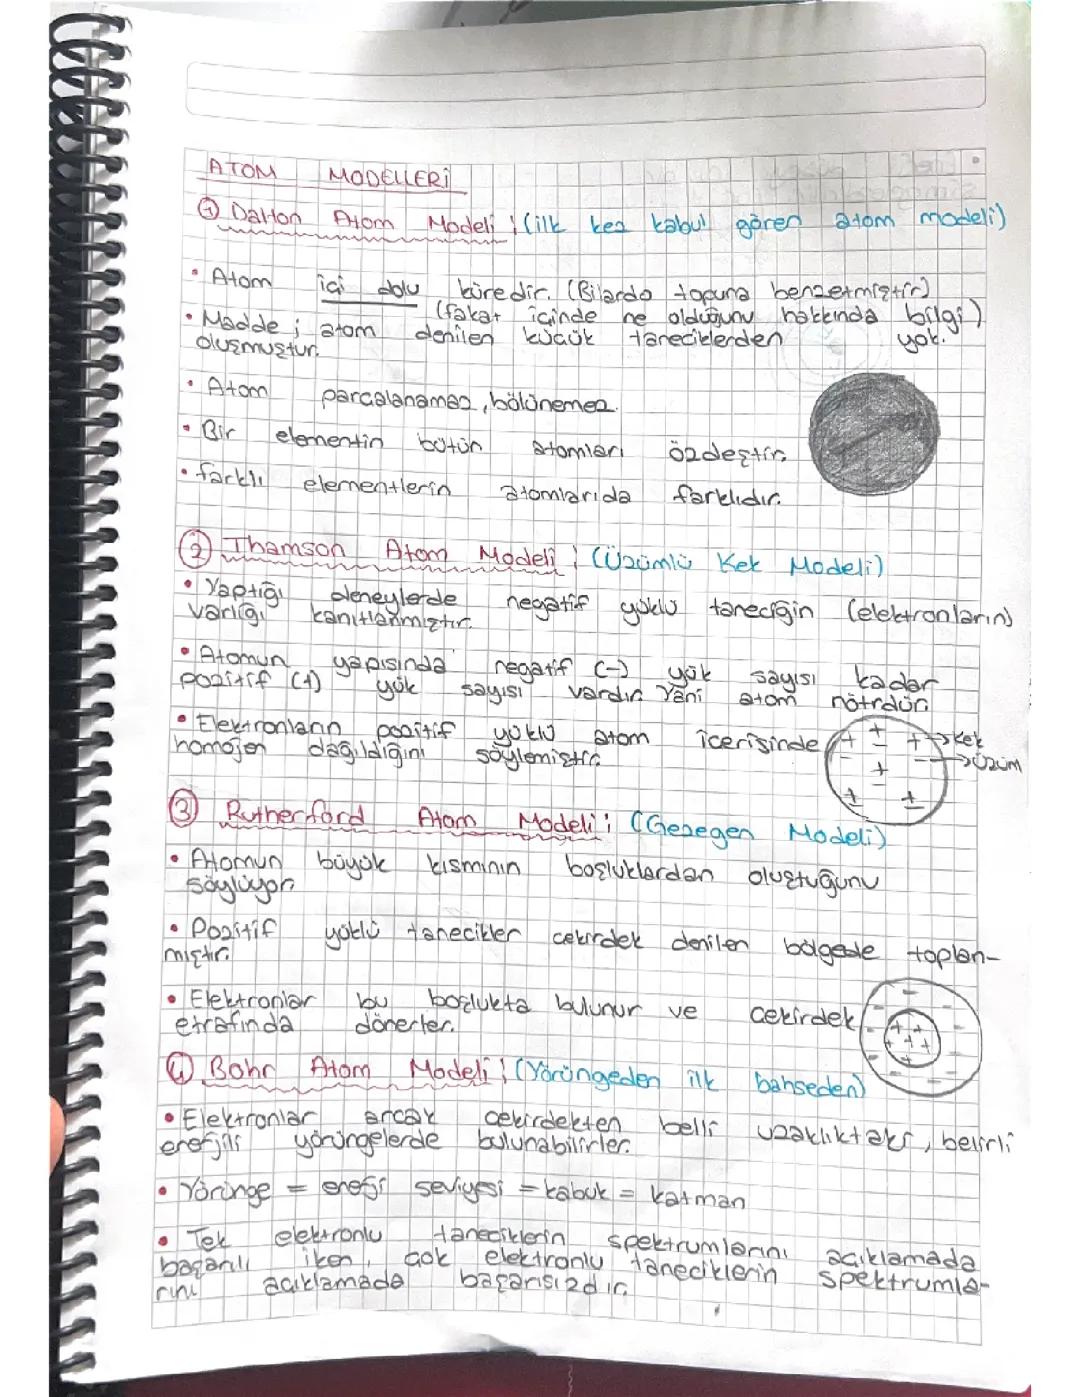 ATOM MODELLERİ
① Dalton Atom Modeli ; (ilk kez kabul gören atom modeli)
• Atom içi dolu küredir. (Bilardo topuna benzetmiştir)
(fakat içinde ne olduğunu hakkında bilgi yok.)
• Madde ; atom denilen küçük taneciklerden
oluşmuştur.
• Atom parçalanamaz, bölünemez.
• Bir elementin bütün atomları özdeştir.
• farklı elementlerin atomlarıda farklıdır.
② Thamson Atom Modeli ; (Üzümlü Kek Modeli)
• Yaptığı deneylerde negatif yüklü taneciğin (elektronların)
varlığı kanıtlanmıştır.
• Atomun yapısında negatif (-) yük sayısı kadar
pozitif (+) yük sayısı vardır. Yani atom nötrdür.
• Elektronların pozitif yüklü atom içerisinde
homojen dağıldığını söylemiştir.
+ + + - - - + - + +
kek
üzüm
③ Rutherford Atom Modeli ; (Gezegen Modeli)
• Atomun büyük kısmının boşluklardan oluştuğunu
söylüyor.
• Pozitif yüklü tanecikler çekirdek denilen bölgede toplan-
mıştır.
• Elektronlar bu boşlukta bulunur ve çekirdek
etrafında dönerler.
④ Bohr Atom Modeli ; (Yörüngeden ilk bahseden)
• Elektronlar ancak çekirdekten belli uzaklıktaki, belirli
enerjili yörüngelerde bulunabilirler.
• Yörünge = enerji seviyesi = kabuk = katman
• Tek elektronlu taneciklerin spektrumlarını açıklamada
başarılı iken, çok elektronlu taneciklerin spektrumla-
rını açıklamada başarısızdır.